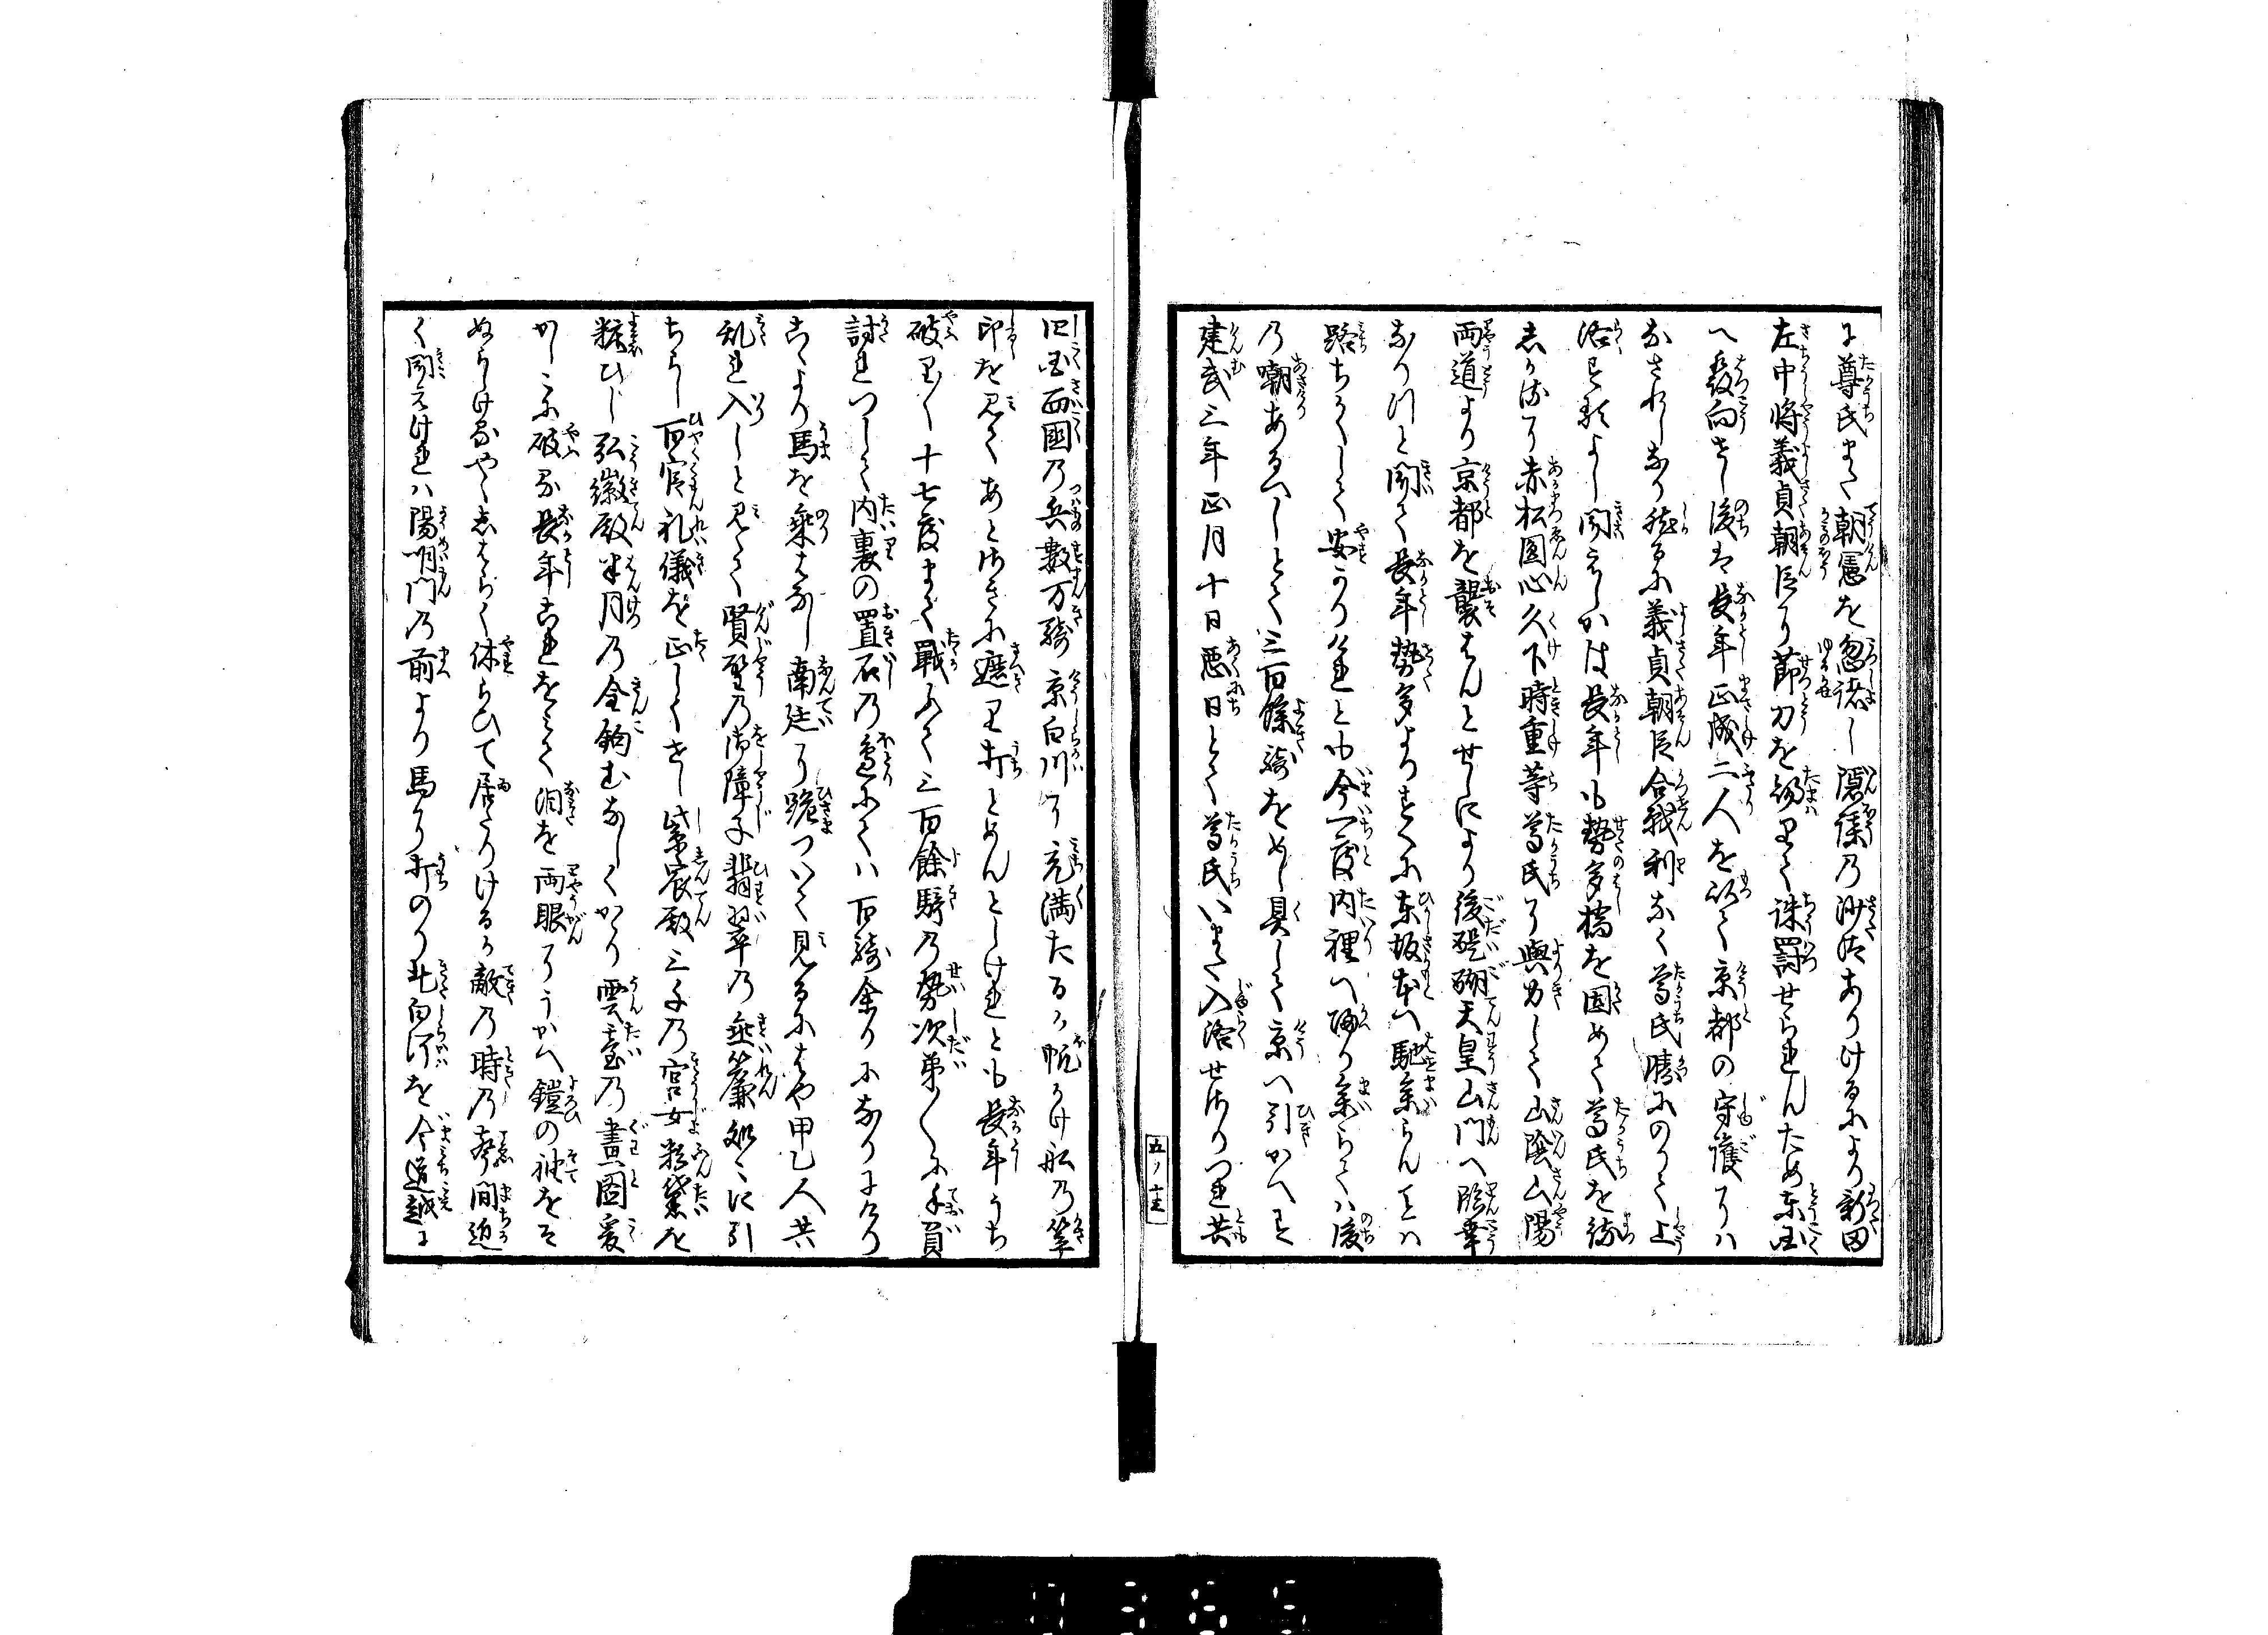 に尊氏また朝憲を忽諸し隠謀乃沙汰ありけるにより新田
左中将義貞朝臣に節刀を賜りて誅罰せられんため東国
へ発向さし後は長年正成二人を以て京都の守護には
なされしなり然るに義貞朝臣合戦利なく尊氏勝にのりて上
洛する由聞えしかは長年も勢多橋を固めて尊氏を待
しかるに赤松円心久下時重等尊氏に与力して山陰山陽
両道より京都を襲はんとせしにより後醍醐天皇山門へ臨幸
なりけりと聞て長年勢多よりすくに東坂本へ馳参らんことは
路ちかくして安かりけれとも今一度内裡へ帰り参らては後
乃嘲あるへしとて三百余騎をめし具して京へ引かへす
建武三年正月十日悪日とて尊氏いまた入洛せさりつれ共
四国西国乃兵数万騎京白川に充満たるか帆かけ船乃筆
印を見てあとさきに遮り打とめんとしけれとも長年うち
破り〱十七度まて戦ふて三百余騎乃勢次第〱に手負
討れつゝして内裏の置石乃辺にては百騎余りになりにけり
こゝより馬を乗はなし南廷に跪ついて見るにはや甲乙人共
乱れ入しと見えて賢聖乃御障子翡翠乃垂簾処々に引
ちらし百官礼儀を正しくさし紫宸殿三千乃宮女粉黛を
粧ひし弘徽殿半月乃金鉤むなしくかゝり雲台乃画図爰
かしこに破る長年これをみて泪を両眼にうかへ鎧の袖をそ
ぬらしけるやゝしはらく休らひて居たりけるか敵乃時乃声間近
く聞えけれは陽明門乃前より馬に打のり北白河を今道越に
五ノ十五